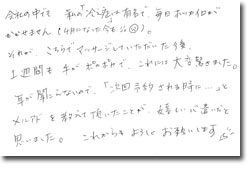 会社の中でも 私の「冷え症」は有名で、毎日ホッカイロが
かかせません(4月になった今も☹)。
それが、こちらでマッサージしていただいた後、
1週間も手がポカポカで、これには大変驚きました。
耳が聞こえないので、「次回予約される時は…」と
メルアドを教えて頂いたことが、嬉しい心遣いだと
思いました。これからもよろしくお願いします